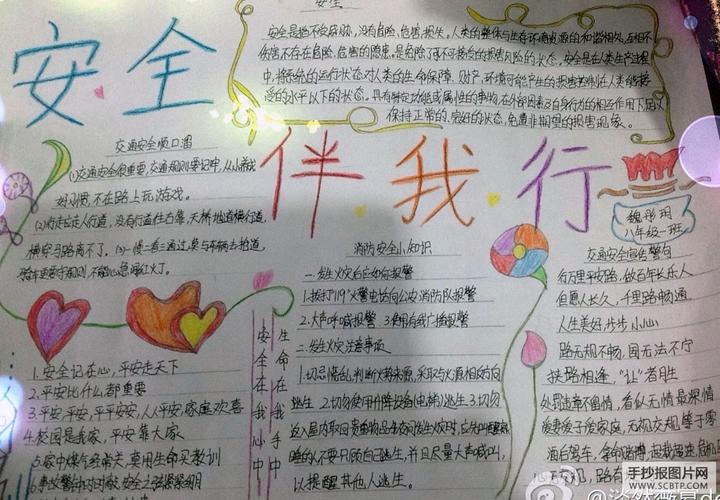 安全
伴我行
安全
安全是指不受威胁,没有危险、危害、损失。人类的整体与生存环境资源的和谐相处,互相不
伤害,不存在危险、危害的隐患,是免除了不可接受的损害风险的状态。安全是在人类生产过程
中,将系统的运行状态对人类的生命、财产、环境可能产生的损害控制在人类能接
受的水平以下的状态。
保持正常的、完好的状态,免遭非期望的损害现象。
交通安全顺口溜
(1)交通安全很重要,交通规则要记牢,从小养成
好习惯,不在路上玩游戏。
(2)行走应走人行道,没有行道往右靠,天桥地道横行道,
横穿马路离不了。(3)一慢二看三通过,莫与车辆去抢道。
骑车更要守规则,不能心急闯红灯。
魏彤玥
八年级一班
消防安全小知识
一、发生火灾后应如何报警
1.拨打119火警电话向公安消防队报警
2.大声呼喊报警 3.使用有线广播报警
二、发生火灾注意事项
1.切忌慌乱,判断火势来源,采取与火源相反方向
逃生 2.切勿使用升降设备(电梯)逃生 3.切勿
返入屋内取回贵重物品
睡的人,不要只顾自己逃生,并且尽量大声喊叫,
以提醒其他人逃生。
交通安全宣传警句
行万里平安路,做百年长乐人
但愿人长久,千里路畅通
人生美好,步步小心
路无规不畅,国无法不宁
狭路相逢,“让”者用生
处罚违章不留情,看似无情最深情
1.安全记在心,平安走天下
2.平安比什么都重要
3.平安,平安,平平安安,人人平安,家庭欢喜
4.校园是我家,平安靠大家
5.家中煤气经常关,莫用生命买教训
生命在我手中
安全在我心中
手抄报图片网
WWW.SCBTP.COM